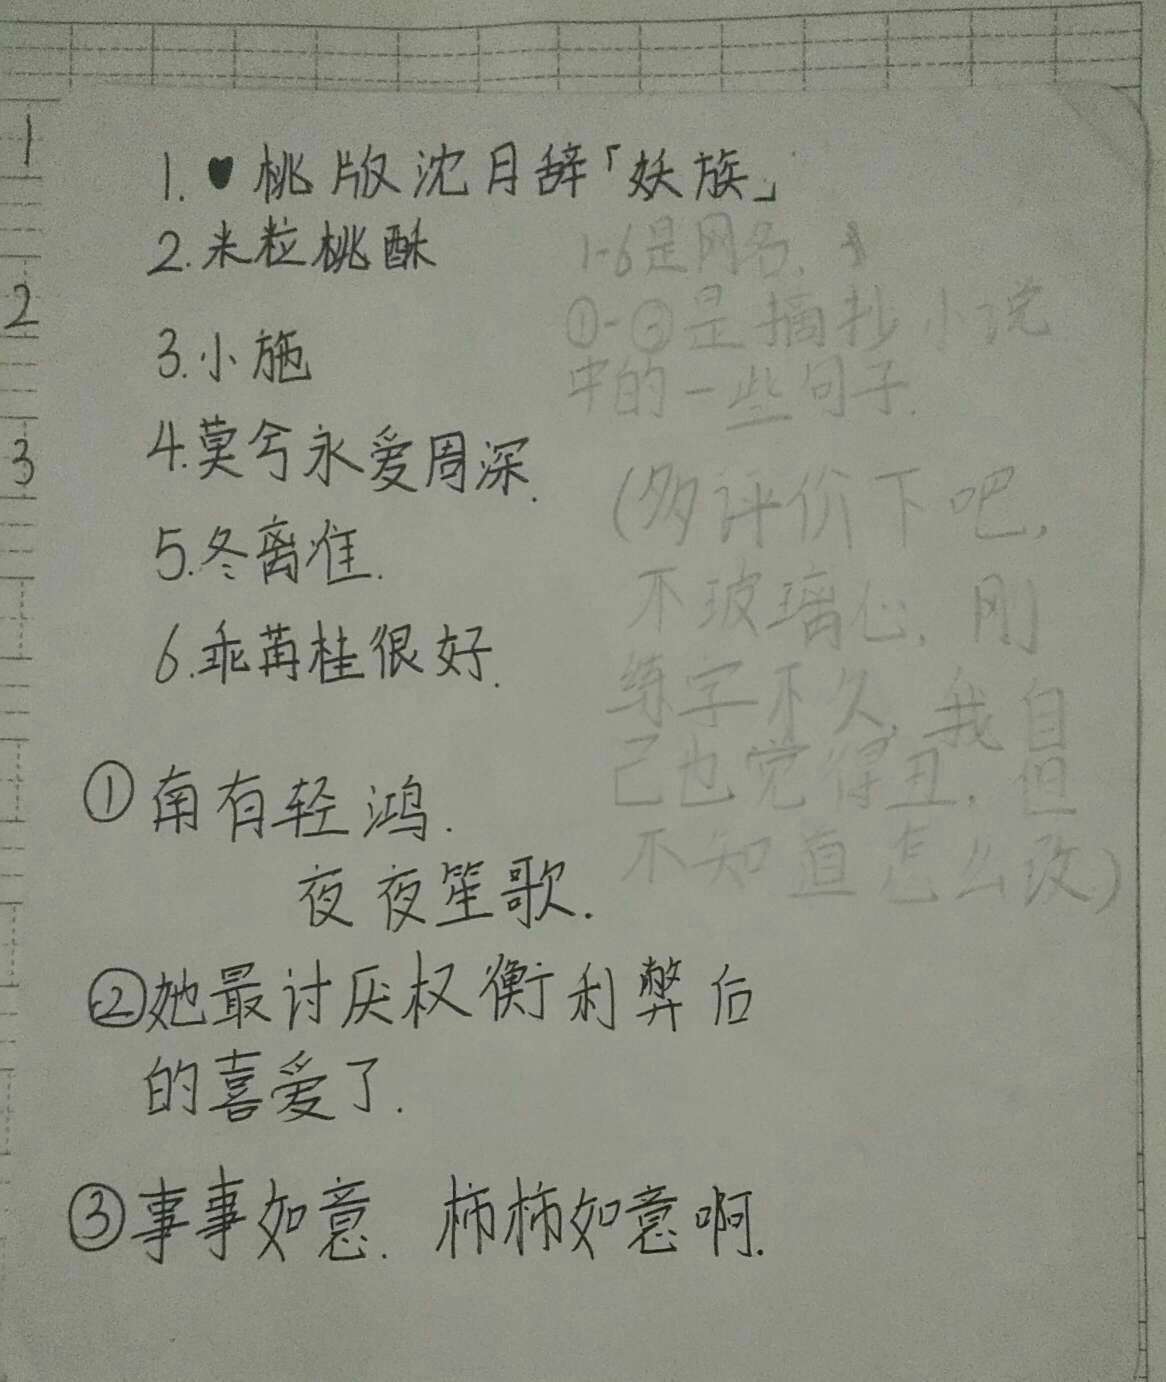 1
2
3
1.♥桃版沈月辞「妖族」
2.米粒桃酥
3.小施
4.莫兮永爱周深.
5.冬离准.
6.乖苒桂很好.
1-6是网名.
①-③是摘抄小说
中的一些句子.
(多评价下吧,
不玻璃心,刚
练字不久,我自
己也觉得丑,但
不知道怎么改)
①南有轻鸿.
夜夜笙歌.
②她最讨厌权衡利弊后
的喜爱了.
③事事如意.柿柿如意啊.